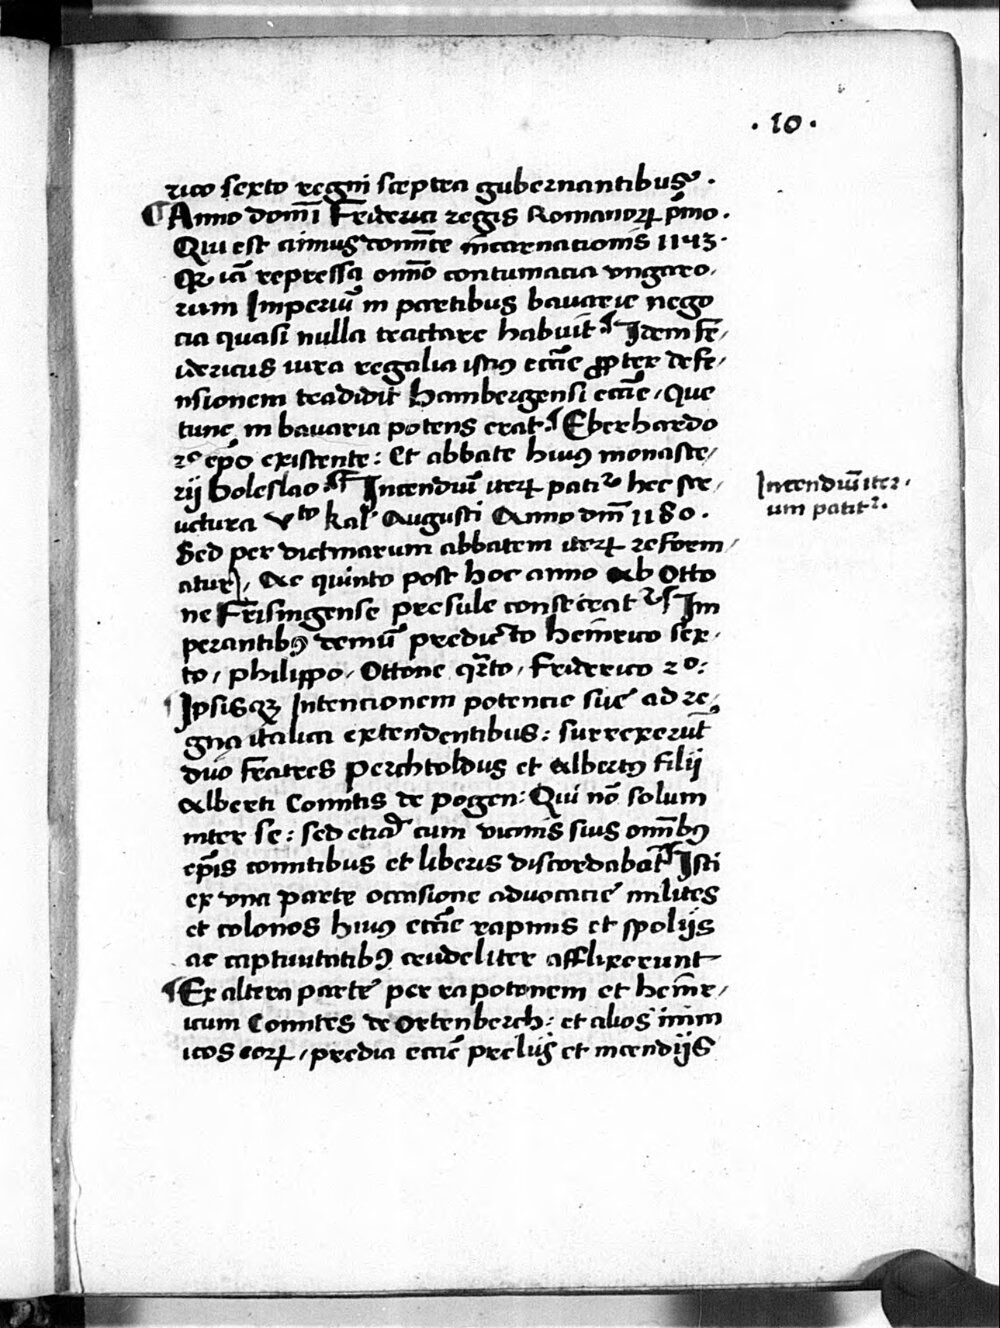 · 10 ·
rico sexto regni sceptra gubernantibus ·
Anno domī Friderici regis Romanoꝝ pͥmo ·
Qui est annus domīce incarnationis 1143 ·
iā repressa omīo contumacia vngaro,
rum Imperiū in partibus bavarie nego
cia quasi nulla tractare habuit Idem fr̄,
idericus iura regalia istiꝰ eccīe ꝓpter defe,
nsionem tradidit Bambergensi eccīe, Que
tunc in bavaria potens erat Eberhardo
2º ep̄o existente : Et abbate huiꝰ monaste,
rij Boleslao Incendiū iteꝝ patiᷣ hec str,
uctura vᵗᵒ kal' Augusti Anno dm̄ 1180 ·
Sed per dietmarum abbatem iteꝝ reform,
atur, Ac quinto post hoc anno Ab Otto
ne Frisingense presule consecratᷣ Im
perantibꝰ demū predicto heīnrico sex,
to, philippo, Ottone qᷓrto, Friderico 2º :
Ipsisqꝫ Intencionem potencie sue ad re,
gna italica extendentibus : surrexerūt
duo fratres Perchtoldus et Albertꝰ filij
Alberti Comitis de pogen : Qui nō solum
inter se : sed etiā cum vicinis suis omībꝰ
ep̄is comitibus et liberis discordabāt Isti
ex vna parte occasione advocacie milites
et colonos huiꝰ eccīe rapinis et spolijs
ac captiuitatibꝰ crudeliter afflixerunt
Ex altera parte per rapotonem et heīnr,
icum Comites de Ortenberch : et alios inim
icos eoꝝ, predia eccīe prelijs et incendijs
Incendiū iter,
um patitᷣ ·